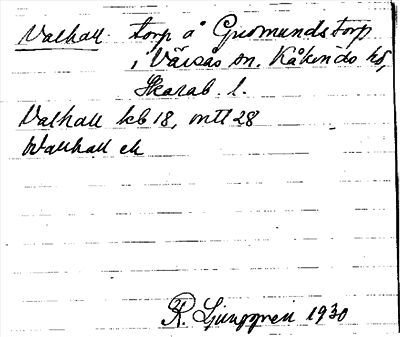 Valhall torp å Gudmundstorp
i Värsås sn. Kåkinds hd,
Skarab. l.
Valhall kb 18, mtl 28
Wallhall ek
R. Ljunggren 1930